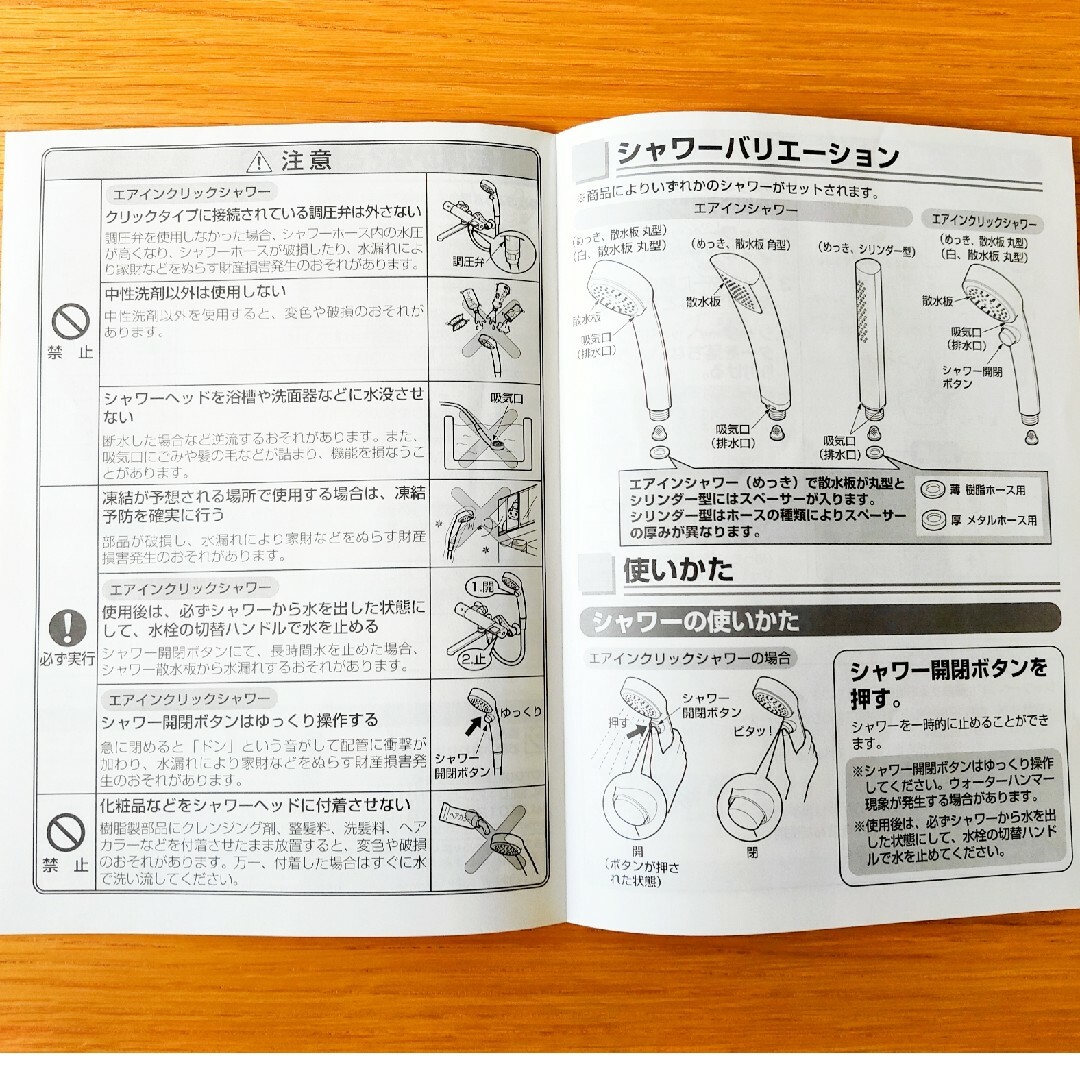 注意
エアインクリックシャワー
クリックタイプに接続されている調圧弁は外さない
調圧弁を使用しなかった場合、シャワーホース内の水圧
が高くなり、シャワーホースが破損したり、水漏れによ
り家財などをぬらす財産損害発生のおそれがあります。
調圧弁
禁 止
中性洗剤以外は使用しない
中性洗剤以外を使用すると、変色や破損のおそれが
あります。
シャワーヘッドを浴槽や洗面器などに水没させ
ない
断水した場合など逆流するおそれがあります。また、
吸気口にごみや髪の毛などが詰まり、機能を損なうこ
とがあります。
吸気口
凍結が予想される場所で使用する場合は、凍結
予防を確実に行う
部品が破損し、水漏れにより家財などをぬらす財産
損害発生のおそれがあります。
必ず実行
エアインクリックシャワー
使用後は、必ずシャワーから水を出した状態に
して、水栓の切替ハンドルで水を止める
シャワー開閉ボタンにて、長時間水を止めた場合、
シャワー散水板から水漏れするおそれがあります。
1.開
2.止
エアインクリックシャワー
シャワー開閉ボタンはゆっくり操作する
急に閉めると「ドン」という音がして配管に衝撃が
加わり、水漏れにより家財などをぬらす財産損害発
生のおそれがあります。
ゆっくり
シャワー
開閉ボタン
禁 止
化粧品などをシャワーヘッドに付着させない
樹脂製部品にクレンジング剤、整髪料、洗髪料、ヘア
カラーなどを付着させたまま放置すると、変色や破損
のおそれがあります。万一、付着した場合はすぐに水
で洗い流してください。
シャワーバリエーション
※商品によりいずれかのシャワーがセットされます。
エアインシャワー
(めっき、散水板 丸型)
(白、散水板 丸型)
散水板
吸気口
(排水口)
(めっき、散水板 角型)
散水板
吸気口
(排水口)
(めっき、シリンダー型)
吸気口
(排水口)
エアインクリックシャワー
(めっき、散水板 丸型)
(白、散水板 丸型)
散水板
吸気口
(排水口)
シャワー開閉
ボタン
エアインシャワー（めっき）で散水板が丸型と
シリンダー型にはスペーサーが入ります。
シリンダー型はホースの種類によりスペーサー
の厚みが異なります。
薄 樹脂ホース用
厚 メタルホース用
使いかた
シャワーの使いかた
エアインクリックシャワーの場合
押す
シャワー
開閉ボタン
ピタッ!
開
(ボタンが押さ
れた状態)
閉
シャワー開閉ボタンを
押す。
シャワーを一時的に止めることができ
ます。
※シャワー開閉ボタンはゆっくり操作
してください。ウォーターハンマー
現象が発生する場合があります。
※使用後は、必ずシャワーから水を出
した状態にして、水栓の切替ハンド
ルで水を止めてください。